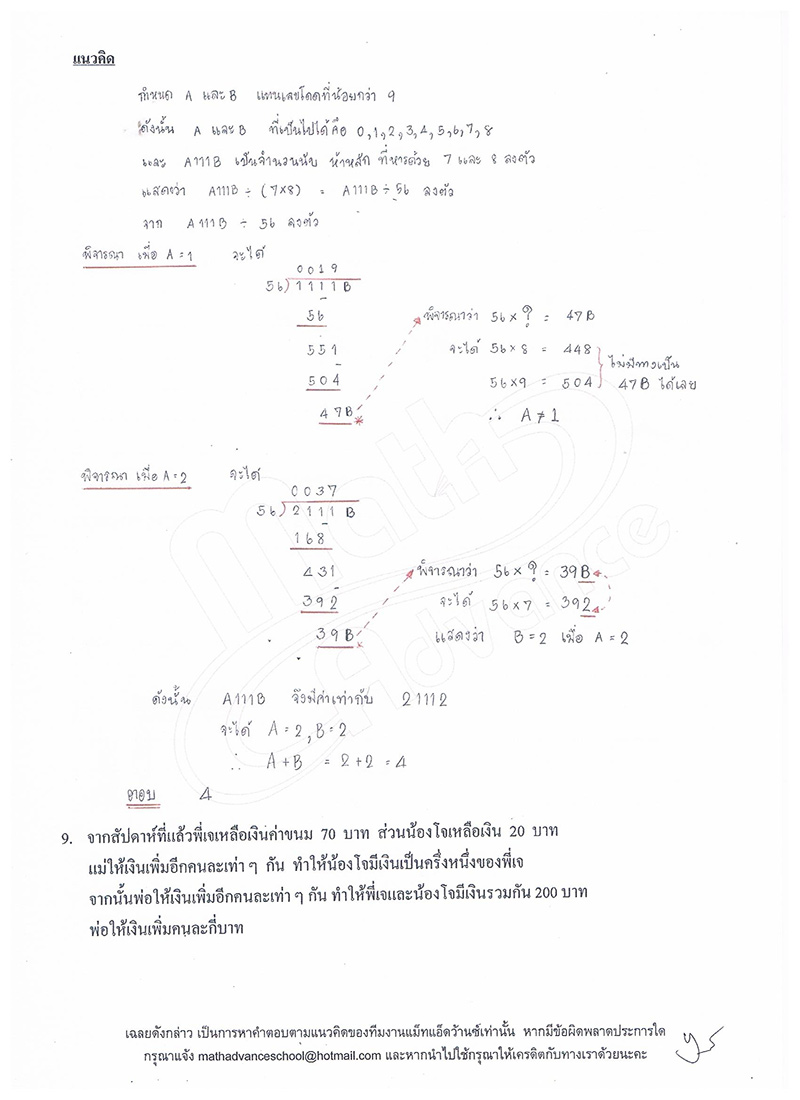 แนวคิด
กำหนด A และ B แทนเลขโดดที่น้อยกว่า 9
ดังนั้น A และ B ที่เป็นไปได้คือ 0,1,2,3,4,5,6,7,8
และ A111B เป็นจำนวนนับ ห้าหลัก ที่หารด้วย 7 และ 8 ลงตัว
แสดงว่า A111B ÷ (7×8) = A111B ÷ 56 ลงตัว
จาก A111B ÷ 56 ลงตัว
พิจารณา เมื่อ A = 1 จะได้
0019
56)1111B
56
551
504
47B
พิจารณาว่า 56 × ? = 47B
จะได้ 56×8 = 448
56×9 = 504
ไม่มีทางเป็น
47B ได้เลย
∴ A ≠ 1
พิจารณา เมื่อ A = 2 จะได้
0037
56)2111B
168
431
392
39B
พิจารณาว่า 56 × ? = 39B
จะได้ 56×7 = 392
แสดงว่า B = 2 เมื่อ A = 2
ดังนั้น A111B จึงมีค่าเท่ากับ 21112
จะได้ A = 2, B = 2
∴ A + B = 2 + 2 = 4
ตอบ 4
9. จากสัปดาห์ที่แล้วพี่เจเหลือเงินค่าขนม 70 บาท ส่วนน้องโจเหลือเงิน 20 บาท
แม่ให้เงินเพิ่มอีกคนละเท่า ๆ กัน ทำให้น้องโจมีเงินเป็นครึ่งหนึ่งของพี่เจ
จากนั้นพ่อให้เงินเพิ่มอีกคนละเท่า ๆ กัน ทำให้พี่เจและน้องโจมีเงินรวมกัน 200 บาท
พ่อให้เงินเพิ่มคนละกี่บาท
Math Advance
เฉลยดังกล่าว เป็นการหาคำตอบตามแนวคิดของทีมงานแม็ทแอ็ดว้านซ์เท่านั้น หากมีข้อผิดพลาดประการใด
กรุณาแจ้ง mathadvanceschool@hotmail.com และหากนำไปใช้กรุณาให้เครดิตกับทางเราด้วยนะคะ